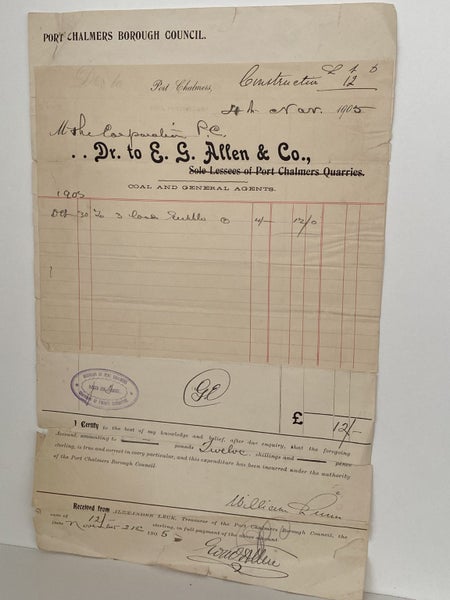 PORT CHALMERS BOROUGH COUNCIL.
£ s D
Construction 12
Port Chalmers,
4th Nov. 1905
M the Corporation P.C.
. . Dr. to E. G. Allen & Co.,
Sole Lessees of Port Chalmers Quarries.
COAL AND GENERAL AGENTS.
1905
Oct 30 To 3 loads @ 4/- 12/0
GE
£ 12/-
I Certify to the best of my knowledge and belief, after due enquiry, that the foregoing
Account, amounting to pounds Twelve shillings and pence
sterling, is true and correct in every particular, and this expenditure has been incurred under the authority
of the Port Chalmers Borough Council.
William
Received from ALEXANDER LECK, Treasurer of the Port Chalmers Borough Council, the
sum of 12/- sterling, in full payment of the above account
Date 1905
Allen